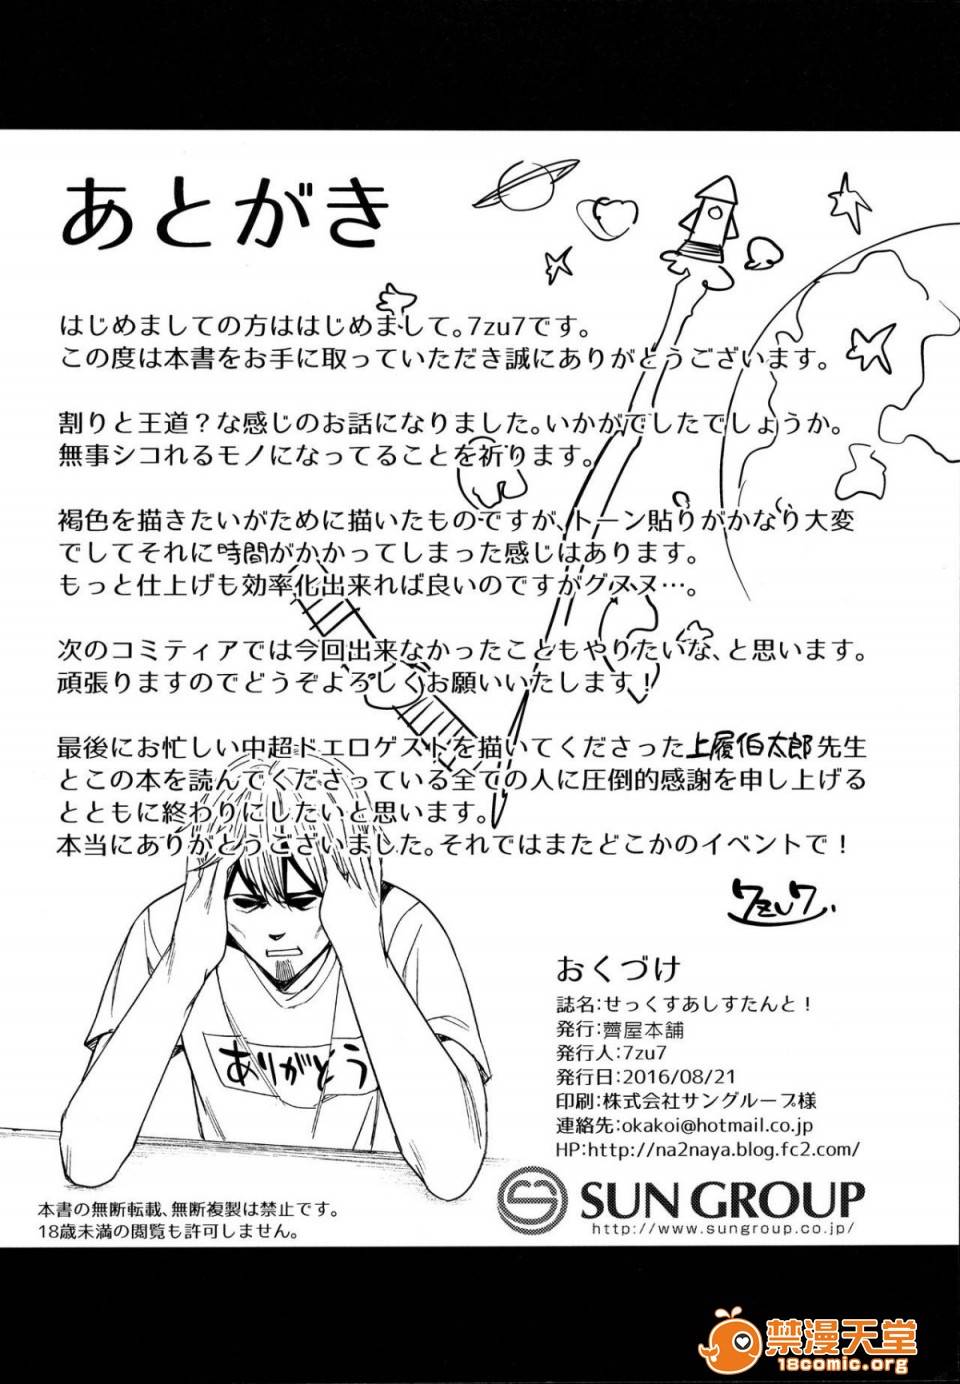 あとがき
はじめましての方ははじめまして。7zu7です。
この度は本書をお手に取っていただき誠にありがとうございます。
割りと王道？な感じのお話になりました。いかがでしたでしょうか。
無事シコれるモノになってることを祈ります。
褐色を描きたいがために描いたものですが、トーン貼りがかなり大変
でしてそれに時間がかかってしまった感じはあります。
もっと仕上げも効率化出来れば良いのですがグヌヌ…。
次のコミティアでは今回出来なかったこともやりたいな、と思います。
頑張りますのでどうぞよろしくお願いいたします！
最後にお忙しい中超ドエロゲストを描いてくださった上履伯太郎先生
とこの本を読んでくださっている全ての人に圧倒的感謝を申し上げる
とともに終わりにしたいと思います。
本当にありがとうございました。それではまたどこかのイベントで！
7zu7.
ありがとう
おくづけ
誌名：せっくすあしすたんと！
発行：薺屋本舗
発行人：7zu7
発行日：2016/08/21
印刷：株式会社サングループ様
連絡先：okakoi@hotmail.co.jp
HP：http://na2naya.blog.fc2.com/
SUN GROUP
http://www.sungroup.co.jp/
本書の無断転載、無断複製は禁止です。
18歳未満の閲覧も許可しません。
禁漫天堂
18comic.org